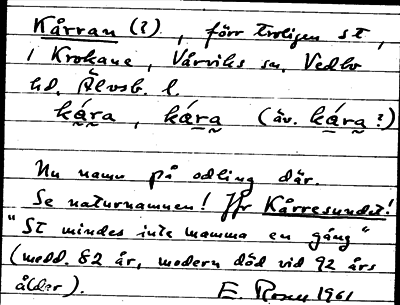 Kårran (?), förr troligen st,
i Krokane, Vårviks sn. Vedbo
hd. Älvsb. l.
kára, kára (äv. kára?)
Nu namn på odling där.
Se naturnamnen! Jfr Kårresundet!
"St mindes inte mamma en gång"
(medd. 82 år, modern död vid 92 års
ålder). E. Rosén 1961